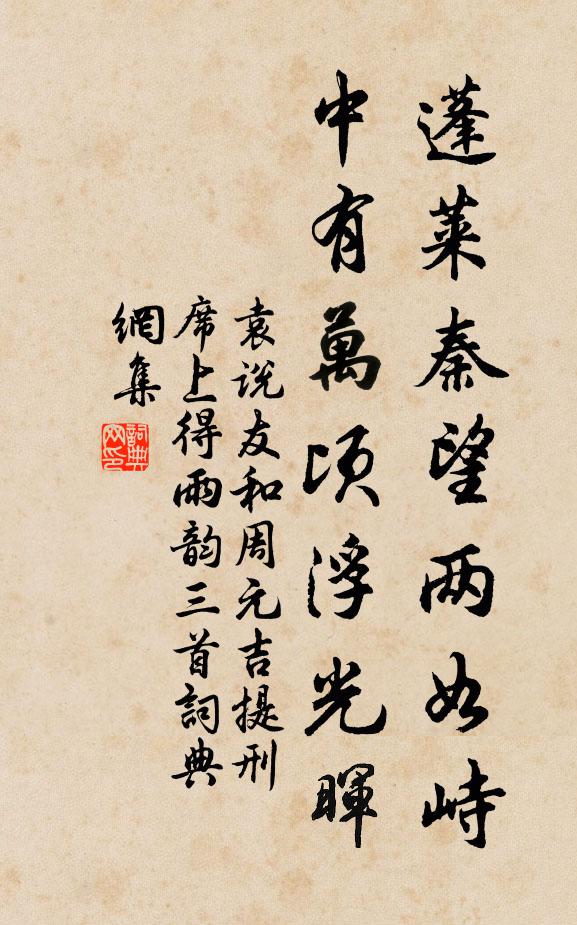 蓬萊秦望两如峙
中有萬頃浮光暉
袁说友和周元吉提刑
席上得雨韵三首詞典
網集
詞典
网印